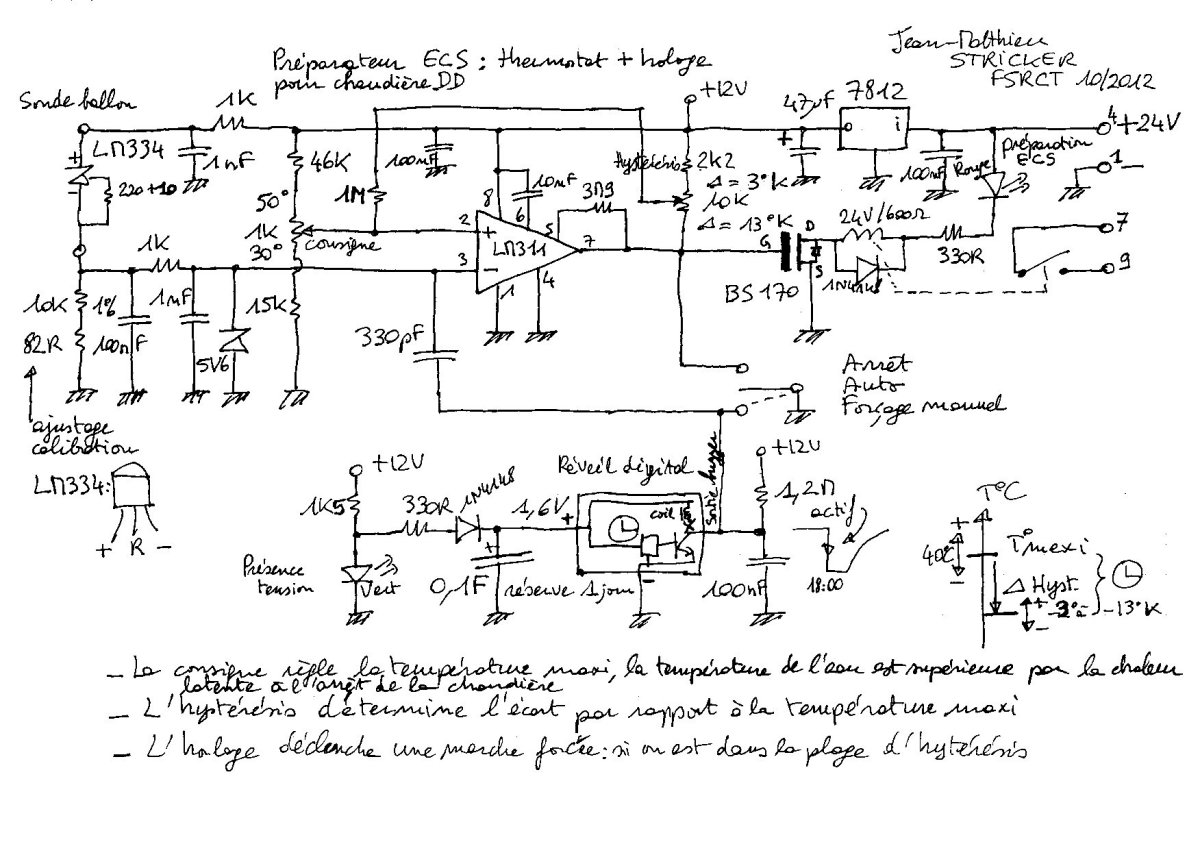 Jean-Matthieu
STRICKER
FSRCT 10/2012
Préparateur ECS : thermostat + hologe
pour chaudière DD
Sonde ballon
1K
+12V
47µF
7812
4
+24V
+
LM334
1nF
46K
100nF
Hystérésis
2K2
+
o
i
préparation
ECS
1
-
220+10
50°
1M
8
10nF
6
5
3M9
Δ = 3°K
10K
Δ = 13°K
100nF
Rouge
1K
1K
30°
consigne
2
+
LM311
7
G
D
S
24V/600Ω
330R
7
9
3
-
1
4
BS170
1N4148
10K
1%
1nF
15K
82R
100nF
5V6
330pF
Arrêt
Auto
Forçage manuel
ajustage
calibration
LM334:
+ R -
+12V
1K5
330R
1N4148
1,6V
+
Réveil digital
coil
Sortie buzzer
+12V
1,2M
actif
T°C
+
40°C
-
T°maxi
Δ Hyst.
+
-
-3°à -13°K
Présence
tension
Vert
+
0,1F
réserve 1 jour
-
100nF
18:00
- La consigne règle la température maxi, la température de l'eau est supérieure par la chaleur
latente à l'arrêt de la chaudière
- L'hystérésis détermine l'écart par rapport à la température maxi
- L'hologe déclenche une marche forcée : si on est dans la plage d'hytérésis